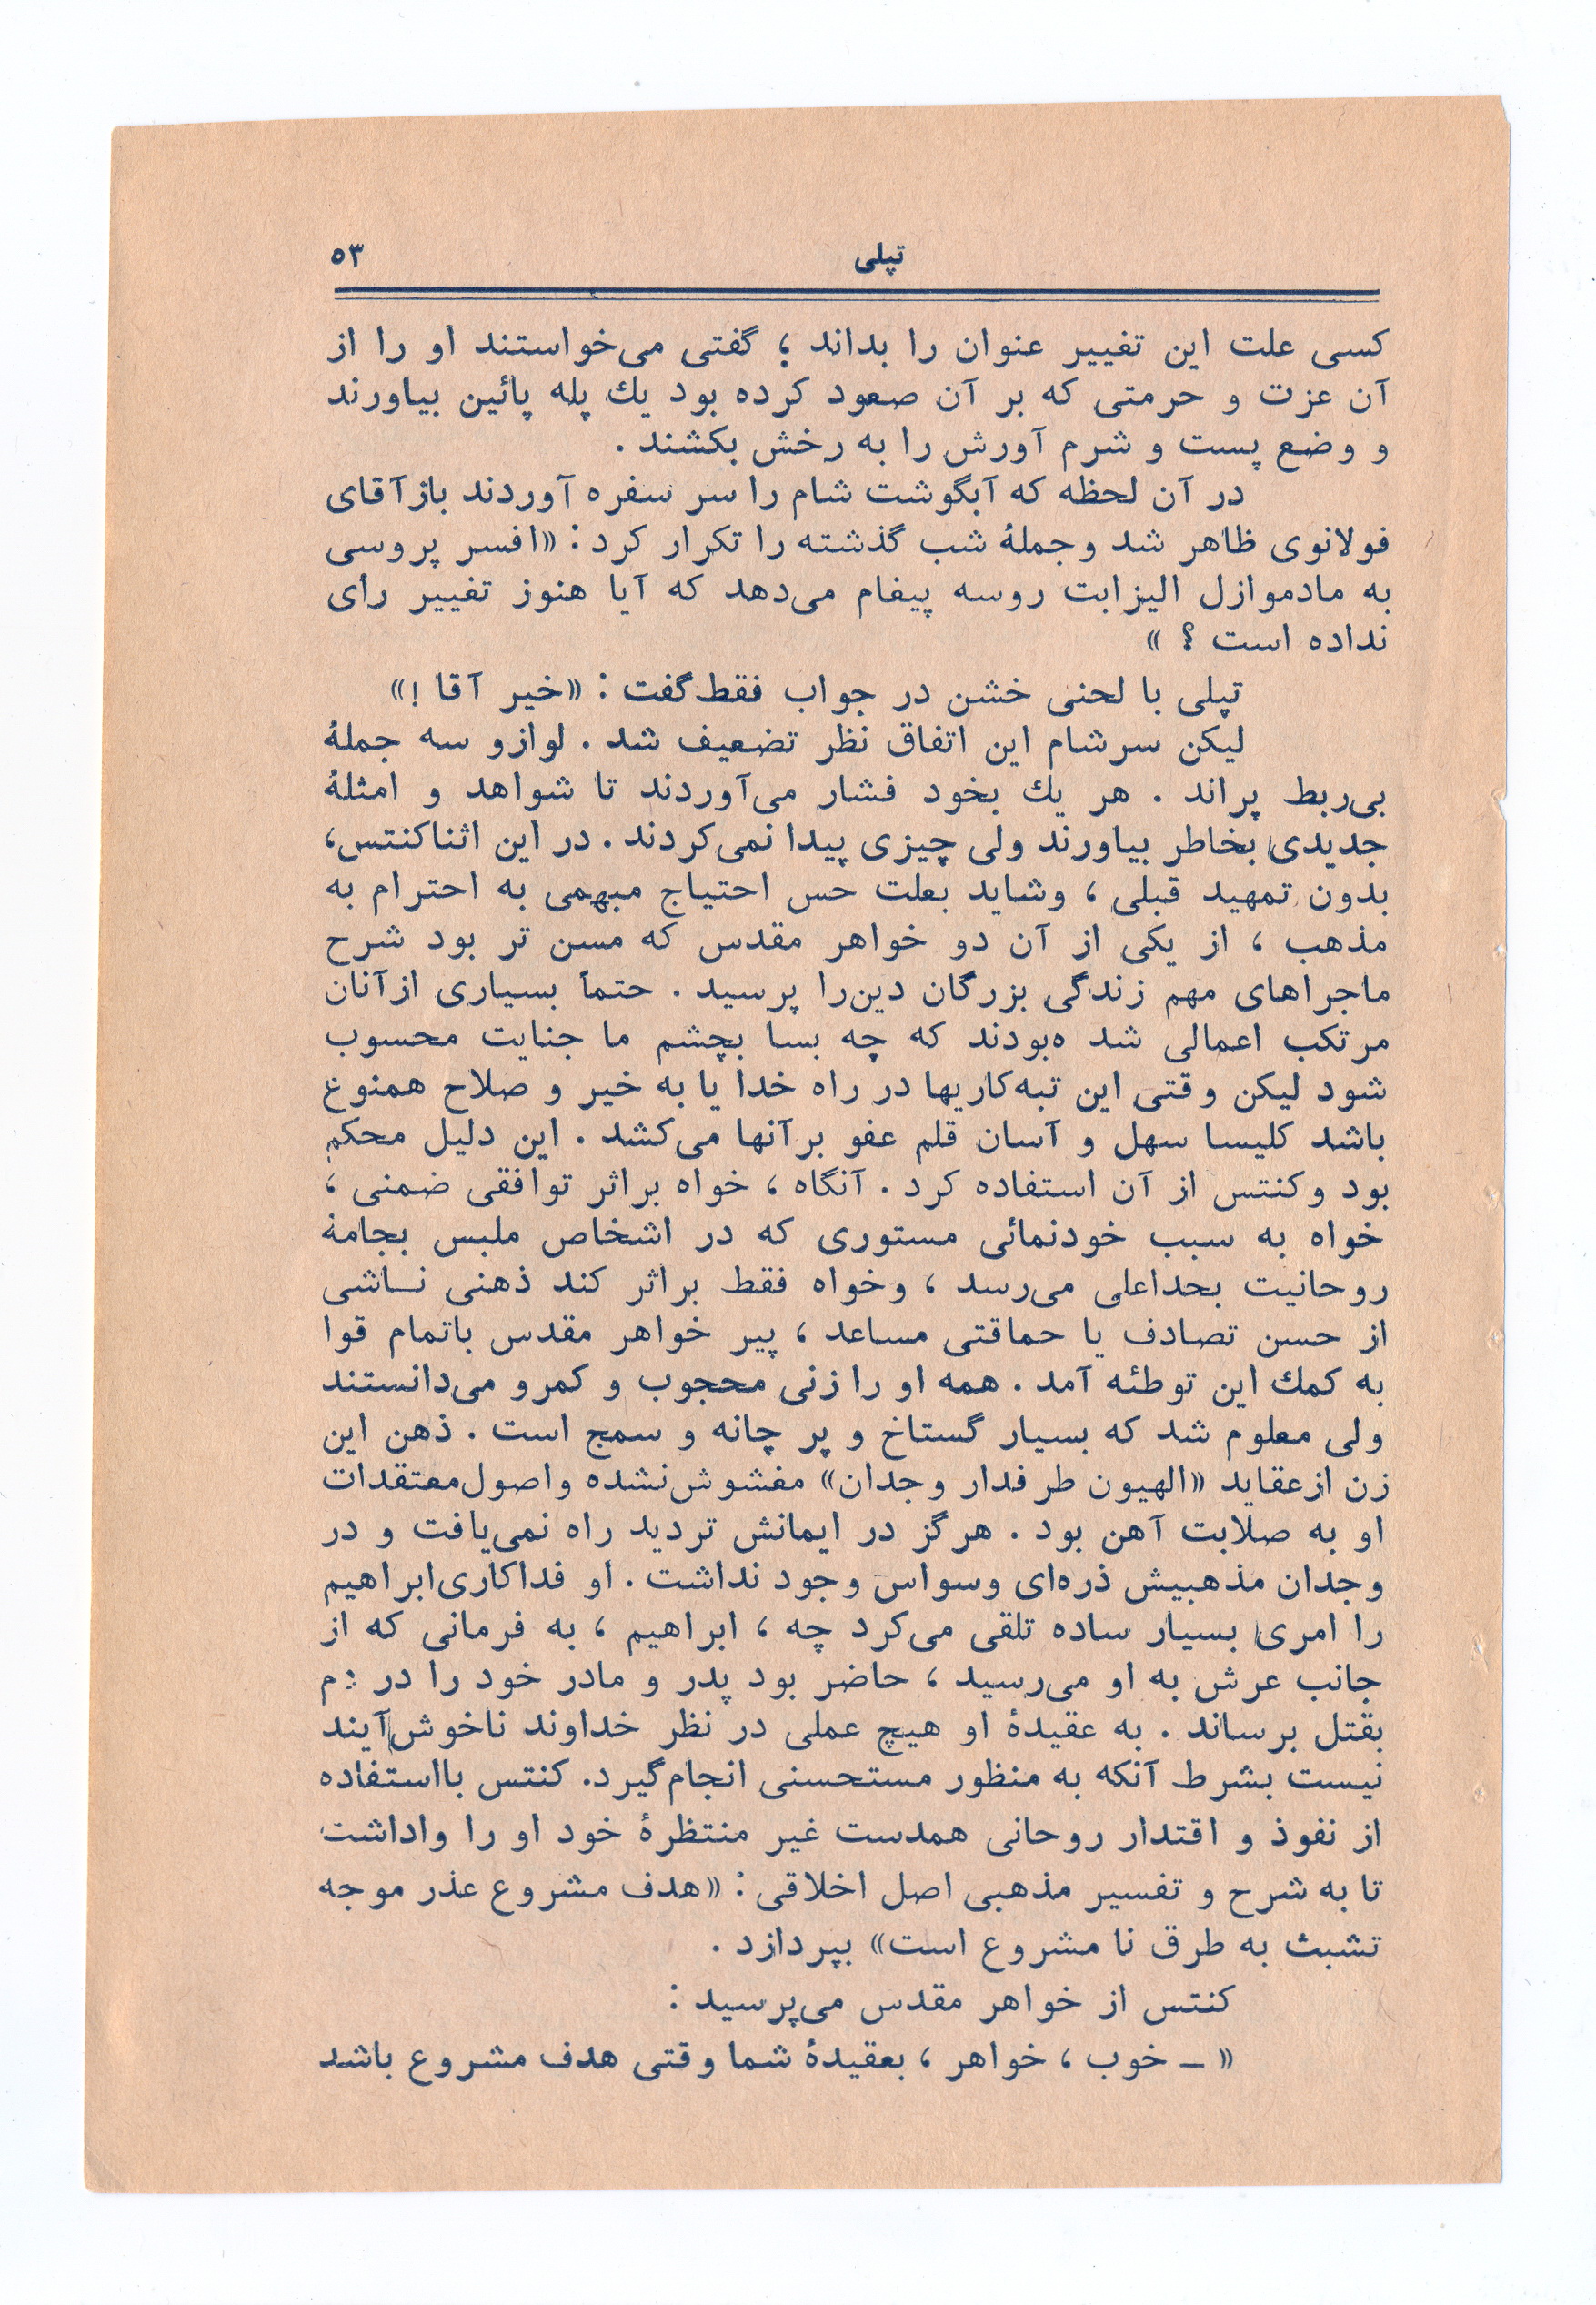 تپلی ۵۳
کسی علت این تغییر عنوان را بداند ؛ گفتی می‌خواستند او را از
آن عزت و حرمتی که بر آن صعود کرده بود یك پله پائین بیاورند
و وضع پست و شرم آورش را به رخش بکشند .
در آن لحظه که آبگوشت شام را سر سفره آوردند باز آقای
فولانوی ظاهر شد و جملهٔ شب گذشته را تکرار کرد : «افسر پروسی
به مادموازل الیزابت روسه پیغام می‌دهد که آیا هنوز تغییر رأی
نداده است ؟ »
تپلی با لحنی خشن در جواب فقط گفت : «خیر آقا !»
لیکن سرشام این اتفاق نظر تضعیف شد . لوازو سه جملهٔ
بی‌ربط پراند . هر یك بخود فشار می‌آوردند تا شواهد و امثلهٔ
جدیدی بخاطر بیاورند ولی چیزی پیدا نمی‌کردند . در این اثنا کنتس،
بدون تمهید قبلی ، وشاید بعلت حس احتیاج مبهمی به احترام به
مذهب ، از یکی از آن دو خواهر مقدس که مسن تر بود شرح
ماجراهای مهم زندگی بزرگان دین‌را پرسید . حتماً بسیاری ازآنان
مرتکب اعمالی شد ه‌بودند که چه بسا بچشم ما جنایت محسوب
شود لیکن وقتی این تبه‌کاریها در راه خدا یا به خیر و صلاح همنوع
باشد کلیسا سهل و آسان قلم عفو برآنها می‌کشد . این دلیل محکم
بود و کنتس از آن استفاده کرد . آنگاه ، خواه براثر توافقی ضمنی ،
خواه به سبب خودنمائی مستوری که در اشخاص ملبس بجامهٔ
روحانیت بحداعلی می‌رسد ، وخواه فقط براثر کند ذهنی نـاشی
از حسن تصادف یا حماقتی مساعد ، پیر خواهر مقدس باتمام قوا
به کمك این توطئه آمد . همه او را زنی محجوب و کمرو می‌دانستند
ولی معلوم شد که بسیار گستاخ و پر چانه و سمج است . ذهن این
زن ازعقاید «الهیون طرفدار وجدان» مغشوش‌نشده واصول‌معتقدات
او به صلابت آهن بود . هرگز در ایمانش تردید راه نمی‌یافت و در
وجدان مذهبیش ذره‌ای وسواس وجود نداشت . او فداکاری‌ابراهیم
را امری بسیار ساده تلقی می‌کرد چه ، ابراهیم ، به فرمانی که از
جانب عرش به او می‌رسید ، حاضر بود پدر و مادر خود را در دم
بقتل برساند . به عقیدهٔ او هیچ عملی در نظر خداوند ناخوش‌آیند
نیست بشرط آنکه به منظور مستحسنی انجام گیرد. کنتس بااستفاده
از نفوذ و اقتدار روحانی همدست غیر منتظرهٔ خود او را واداشت
تا به شرح و تفسیر مذهبی اصل اخلاقی : «هدف مشروع عذر موجه
تشبث به طرق نا مشروع است» بپردازد .
کنتس از خواهر مقدس می‌پرسید :
« ـ خوب ، خواهر ، بعقیدهٔ شما وقتی هدف مشروع باشد